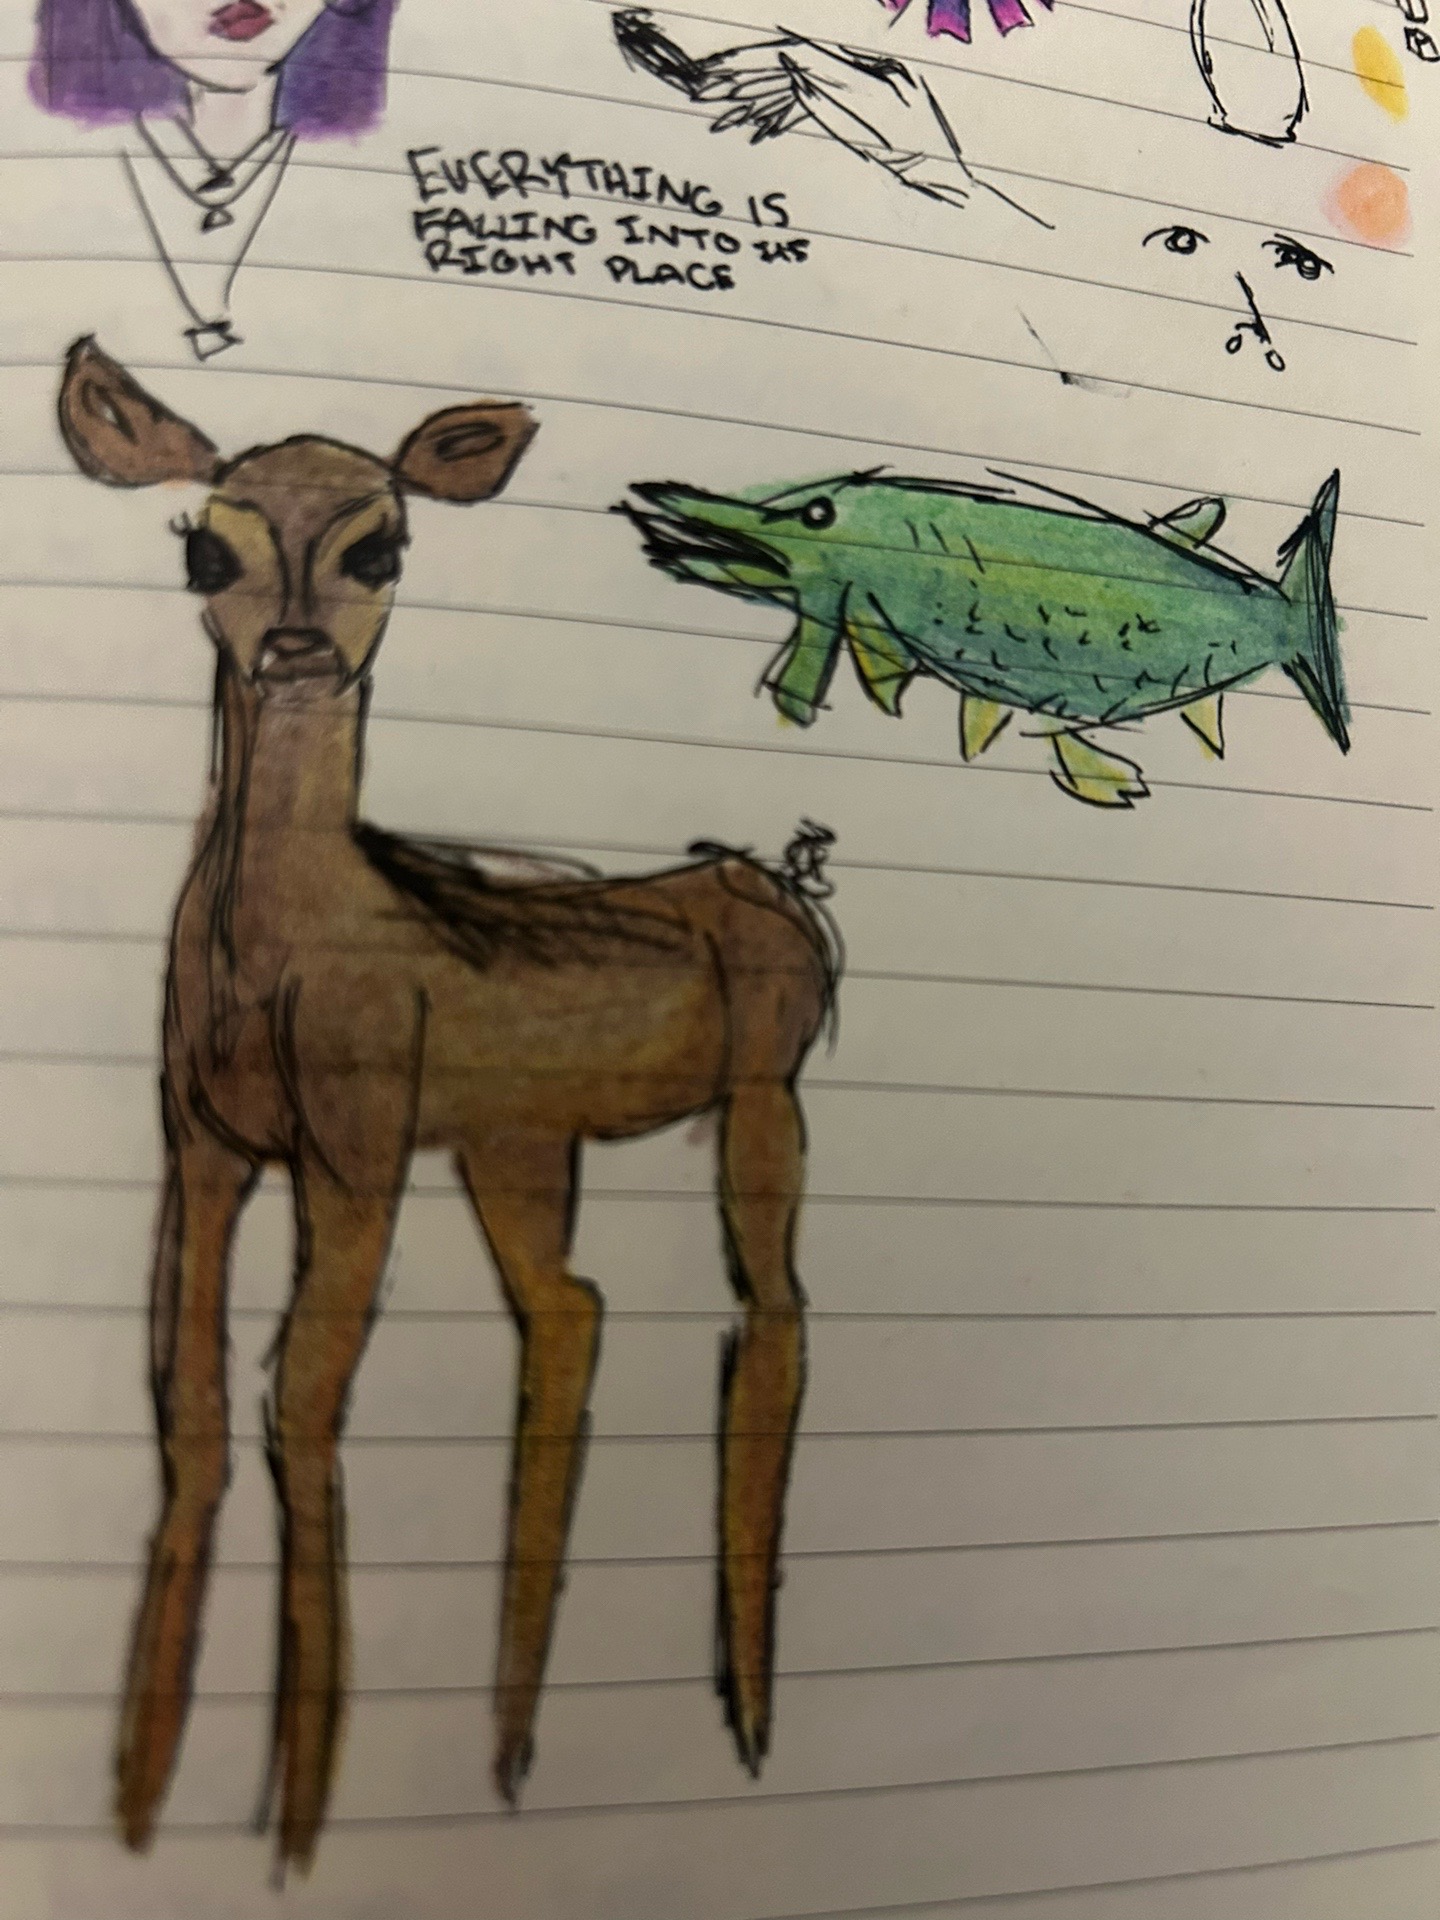 EVERYTHING IS
FALLING INTO ITS
RIGHT PLACE